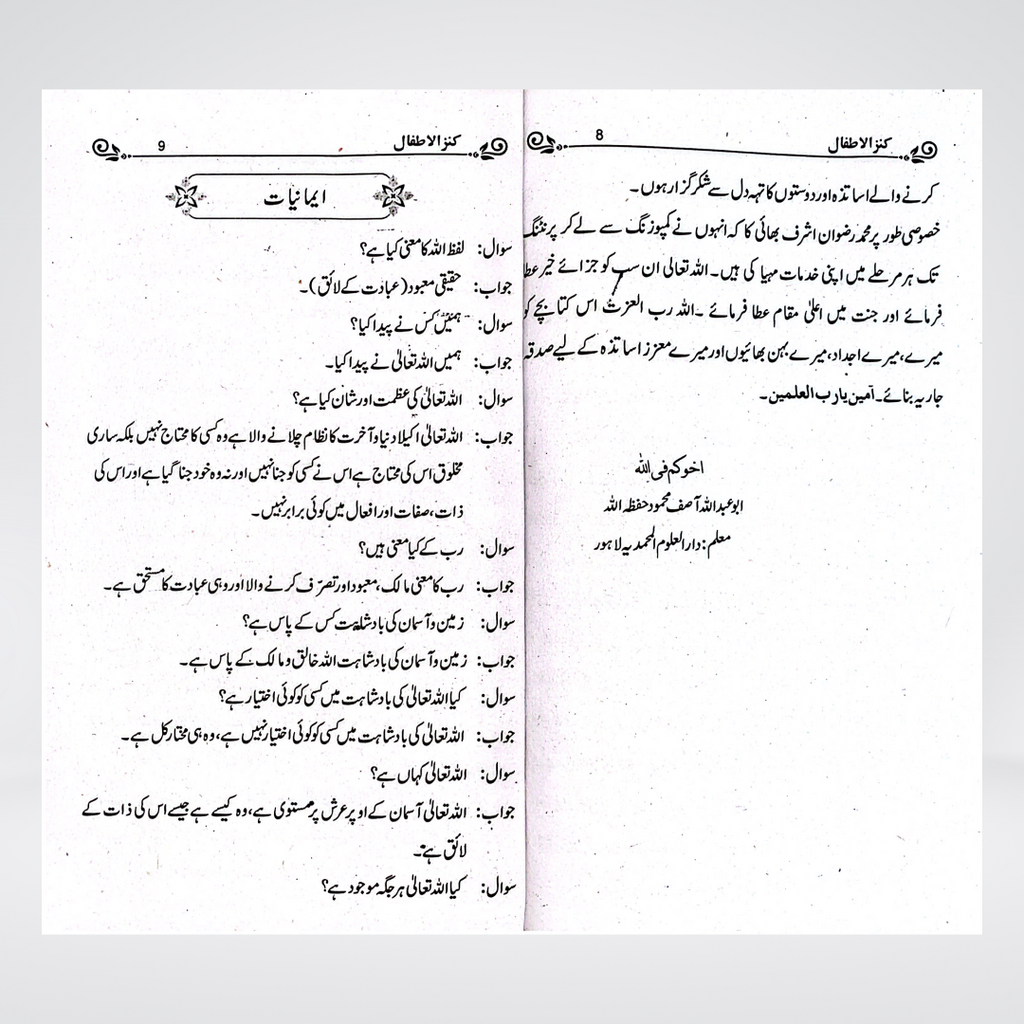 کنز الاطفال 8
کرنے والے اساتذہ اور دوستوں کا تہہ دل سے شکر گزار ہوں۔
خصوصی طور پر محمد رضوان اشرف بھائی کا کہ انہوں نے کمپوزنگ سے لے کر پرنٹنگ
تک ہر مرحلے میں اپنی خدمات مہیا کی ہیں۔ اللہ تعالی ان سب کو جزائے خیر عطا
فرمائے اور جنت میں اعلیٰ مقام عطا فرمائے ۔اللہ رب العزت اس کتابچے کو
میرے، میرے اجداد، میرے بہن بھائیوں اور میرے معزز اساتذہ کے لیے صدقہ
جاریہ بنائے۔ آمین یا رب العلمین۔
اخوکم فی اللہ
ابو عبد اللہ آصف محمود حفظہ اللہ
معلم: دار العلوم المحمدیہ لاہور
کنز الاطفال 9
ایمانیات
سوال: لفظ اللہ کا معنی کیا ہے؟
جواب: حقیقی معبود (عبادت کے لائق)۔
سوال: ہمیں کس نے پیدا کیا؟
جواب: ہمیں اللہ تعالیٰ نے پیدا کیا۔
سوال: اللہ تعالیٰ کی عظمت اور شان کیا ہے؟
جواب: اللہ تعالیٰ اکیلا دنیا و آخرت کا نظام چلانے والا ہے وہ کسی کا محتاج نہیں بلکہ ساری
مخلوق اس کی محتاج ہے اس نے کسی کو جنا نہیں اور نہ وہ خود جنا گیا ہے اور اس کی
ذات، صفات اور افعال میں کوئی برابر نہیں۔
سوال: رب کے کیا معنی ہیں؟
جواب: رب کا معنی مالک، معبود اور تصرّف کرنے والا اور وہی عبادت کا مستحق ہے۔
سوال: زمین و آسمان کی بادشاہت کس کے پاس ہے؟
جواب: زمین و آسمان کی بادشاہت اللہ خالق و مالک کے پاس ہے۔
سوال: کیا اللہ تعالیٰ کی بادشاہت میں کسی کو کوئی اختیار ہے؟
جواب: اللہ تعالیٰ کی بادشاہت میں کسی کو کوئی اختیار نہیں ہے، وہ ہی مختار کل ہے۔
سوال: اللہ تعالیٰ کہاں ہے؟
جواب: اللہ تعالیٰ آسمان کے اوپر عرش پر مستوی ہے، وہ کیسے ہے جیسے اس کی ذات کے
لائق ہے۔
سوال: کیا اللہ تعالیٰ ہر جگہ موجود ہے؟